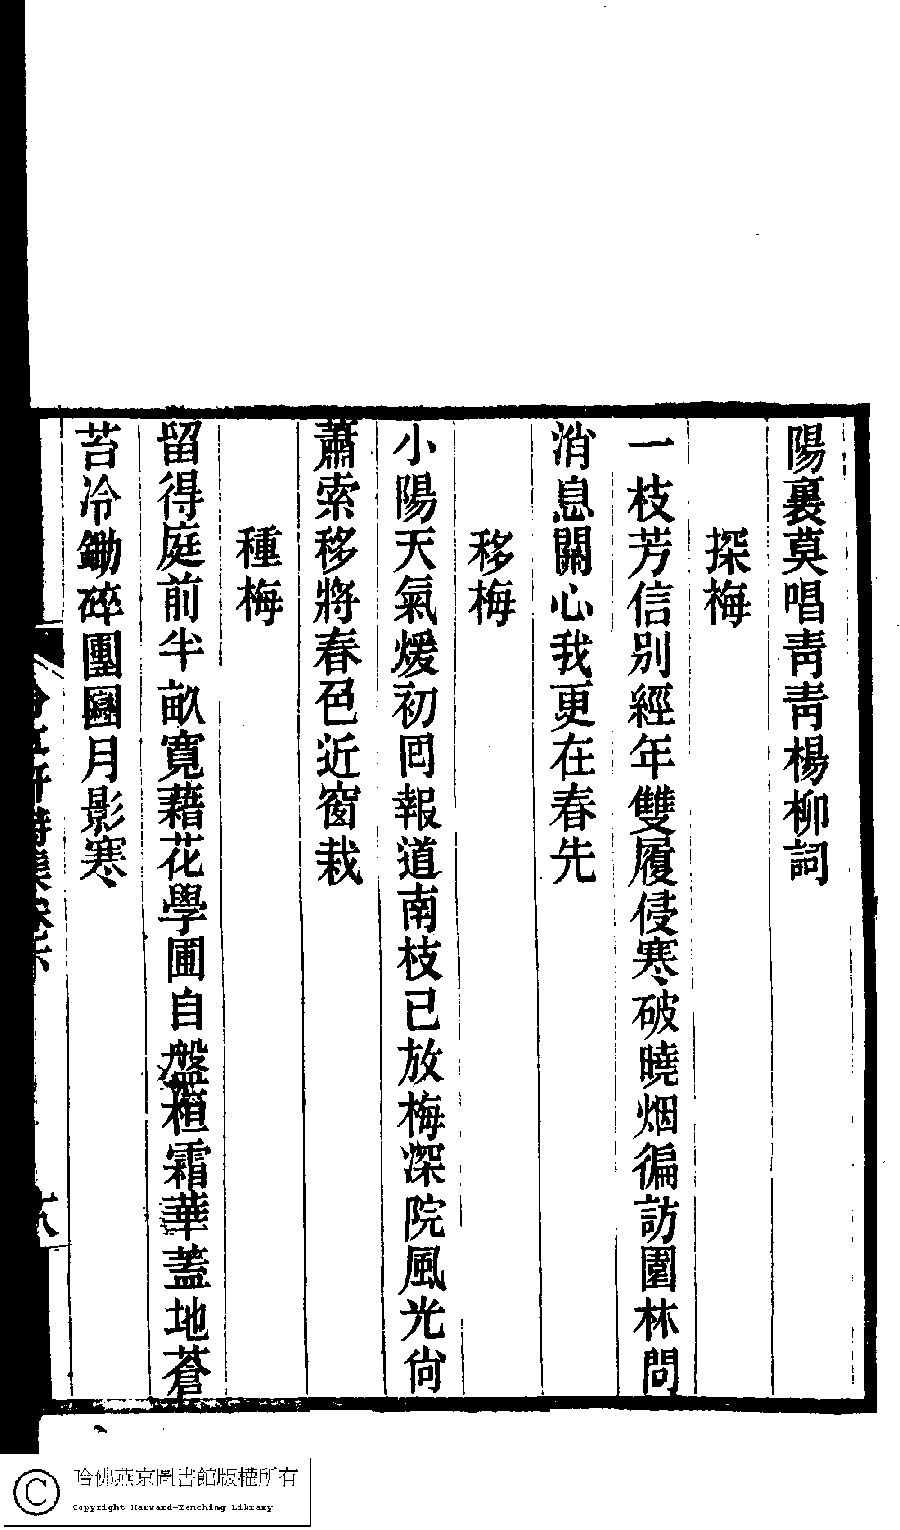 陽裏莫唱靑靑楊柳詞
探梅
一枝芳信別經年雙履侵寒破曉烟徧訪園林問
消息關心我更在春先
移梅
小陽天氣煖初囘報道南枝已放梅深院風光尙
蕭索移將春色近窗栽
種梅
留得庭前半畝寬藉花學圃自盤桓霜華蓋地蒼
苔冷鋤碎團圞月影寒
詩集卷六
哈佛燕京圖書館版權所有
Copyright Harvard-Yenching Library